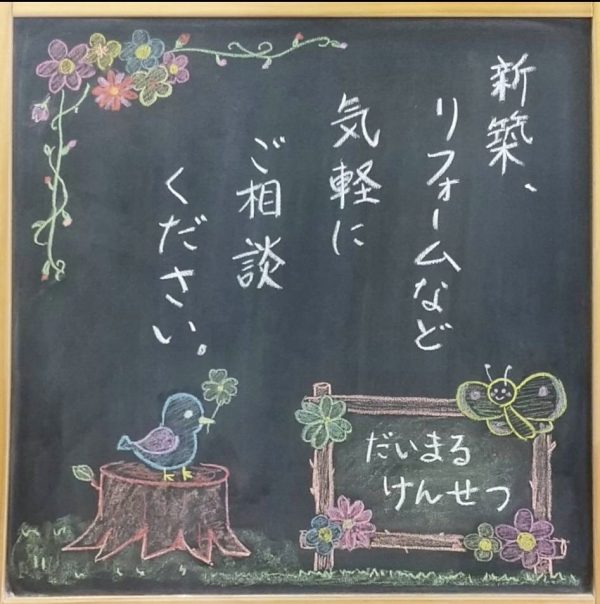 新築、
リフォームなど
気軽に
ご相談
ください。
だいまる
けんせつ